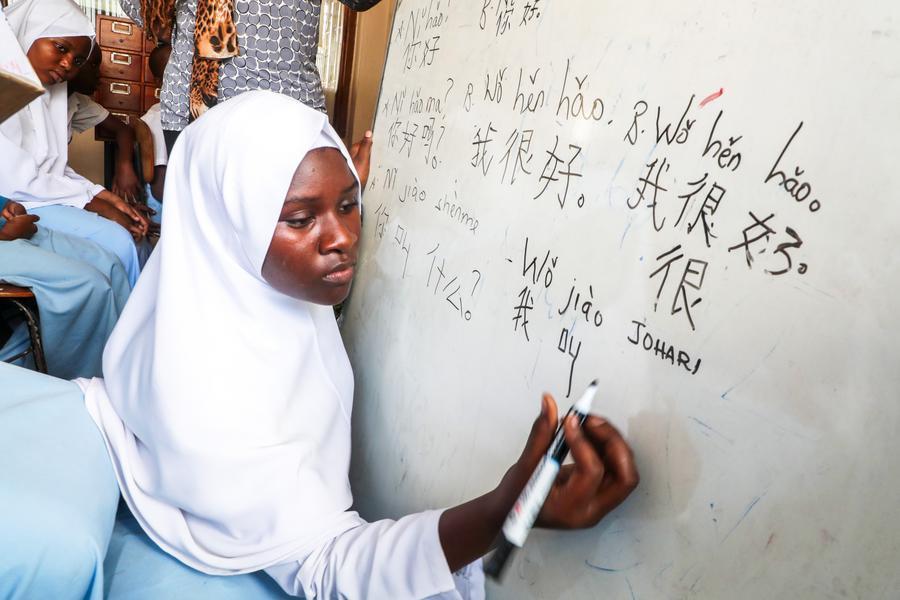 Nǐ hǎo! B:
你好 你好
A Nǐ hǎo ma? B. Wǒ hěn hǎo. B. Wǒ hěn hǎo。
你好吗? 我很好。 我很好。
很
A: Nǐ jiào shénme
你叫什么?
- Wǒ jiào JOHARI
我叫